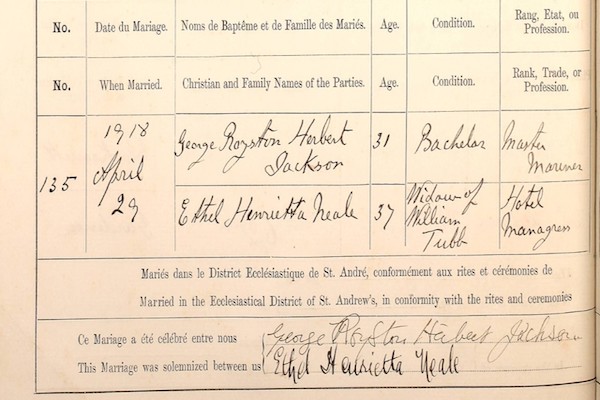 No. Date du Mariage. Noms de Baptême et de Famille des Mariés. Age. Condition. Rang, Etat, ou Profession.
No. When Married. Christian and Family Names of the Parties. Age. Condition. Rank, Trade, or Profession.
135
1918
April
29
George Royston Herbert
Jackson
31
Bachelor
Master
Mariner
Ethel Henrietta Neale
37
Widow of
William
Tubb
Hotel
Manageress
Mariés dans le District Ecclésiastique de St. André, conformément aux rites et cérémonies de
Married in the Ecclesiastical District of St. Andrew's, in conformity with the rites and ceremonies
Ce Mariage a été célébré entre nous
This Marriage was solemnized between us
George Royston Herbert Jackson
Ethel Henrietta Neale